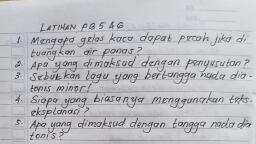 LATIHAN PB 5 & 6
1. Mengapa gelas kaca dapat pecah jika di
tuangkan air panas?
2. Apa yang dimaksud dengan penyusutan?
3. Sebutkan lagu yang bertangga nada dia-
tonis minor!
4. Siapa yang biasanya menggunakan teks
eksplanasi?
5. Apa yang dimaksud dengan tangga nada dia
tonis?